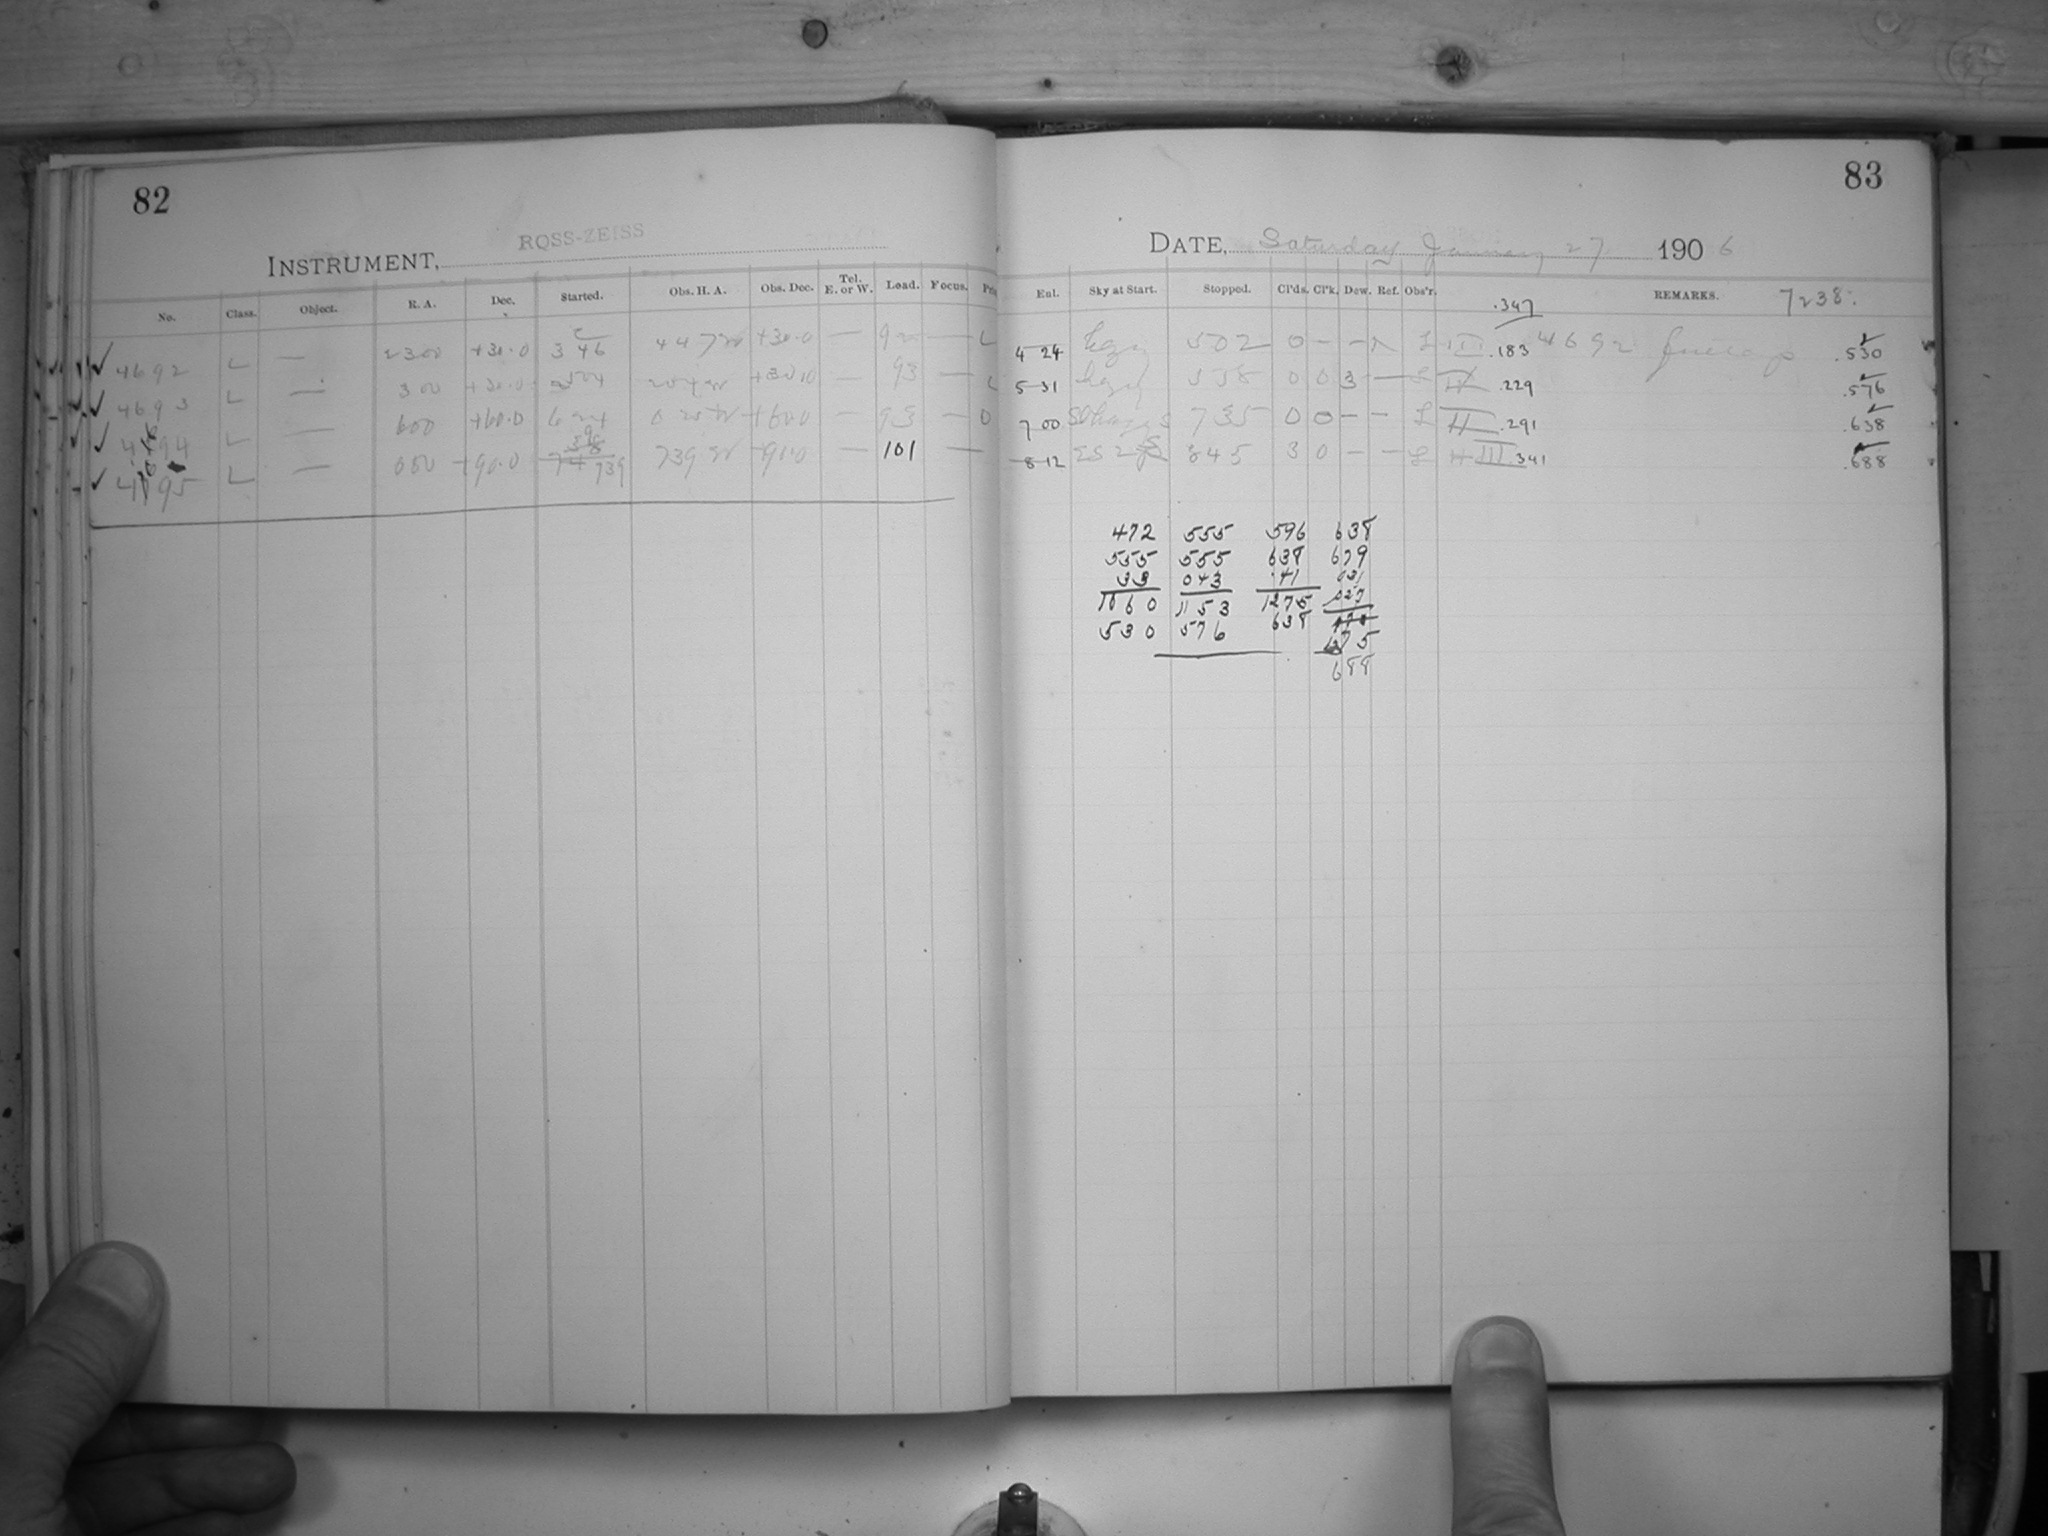 82
ROSS-ZEISS
INSTRUMENT,
No. Class. Object. R. A. Dec. Started. Obs. H. A. Obs. Dec. Tel. E. or W. Load. Focus.
4692 L — 2300 +30.0 346 447 +30.0 — 92 — L
4693 L — 300 +30.0 504 +30.0 — 93 — L
4694 L — 600 +60.0 +60.0 — 93 — 0
4695 L — 000 +90.0 739 739 +90.0 — 101 —
83
DATE, Saturday January 27 1906
Enl. Sky at Start. Stopped. Cl'ds. Cl'k. Dew. Ref. Obs'r. REMARKS. 7238.
.347
4 24 hazy 502 0 - - L III .183 4692 .530
5 31 hazy 558 0 0 3 — L .229 .576
7 00 735 0 0 - - L II .291 .638
8 12 845 3 0 - - L III .341 .688
472 555 596 638
555 555 638 679
33 043 41 031
1060 1153 1275 027
530 576 638
1375
688